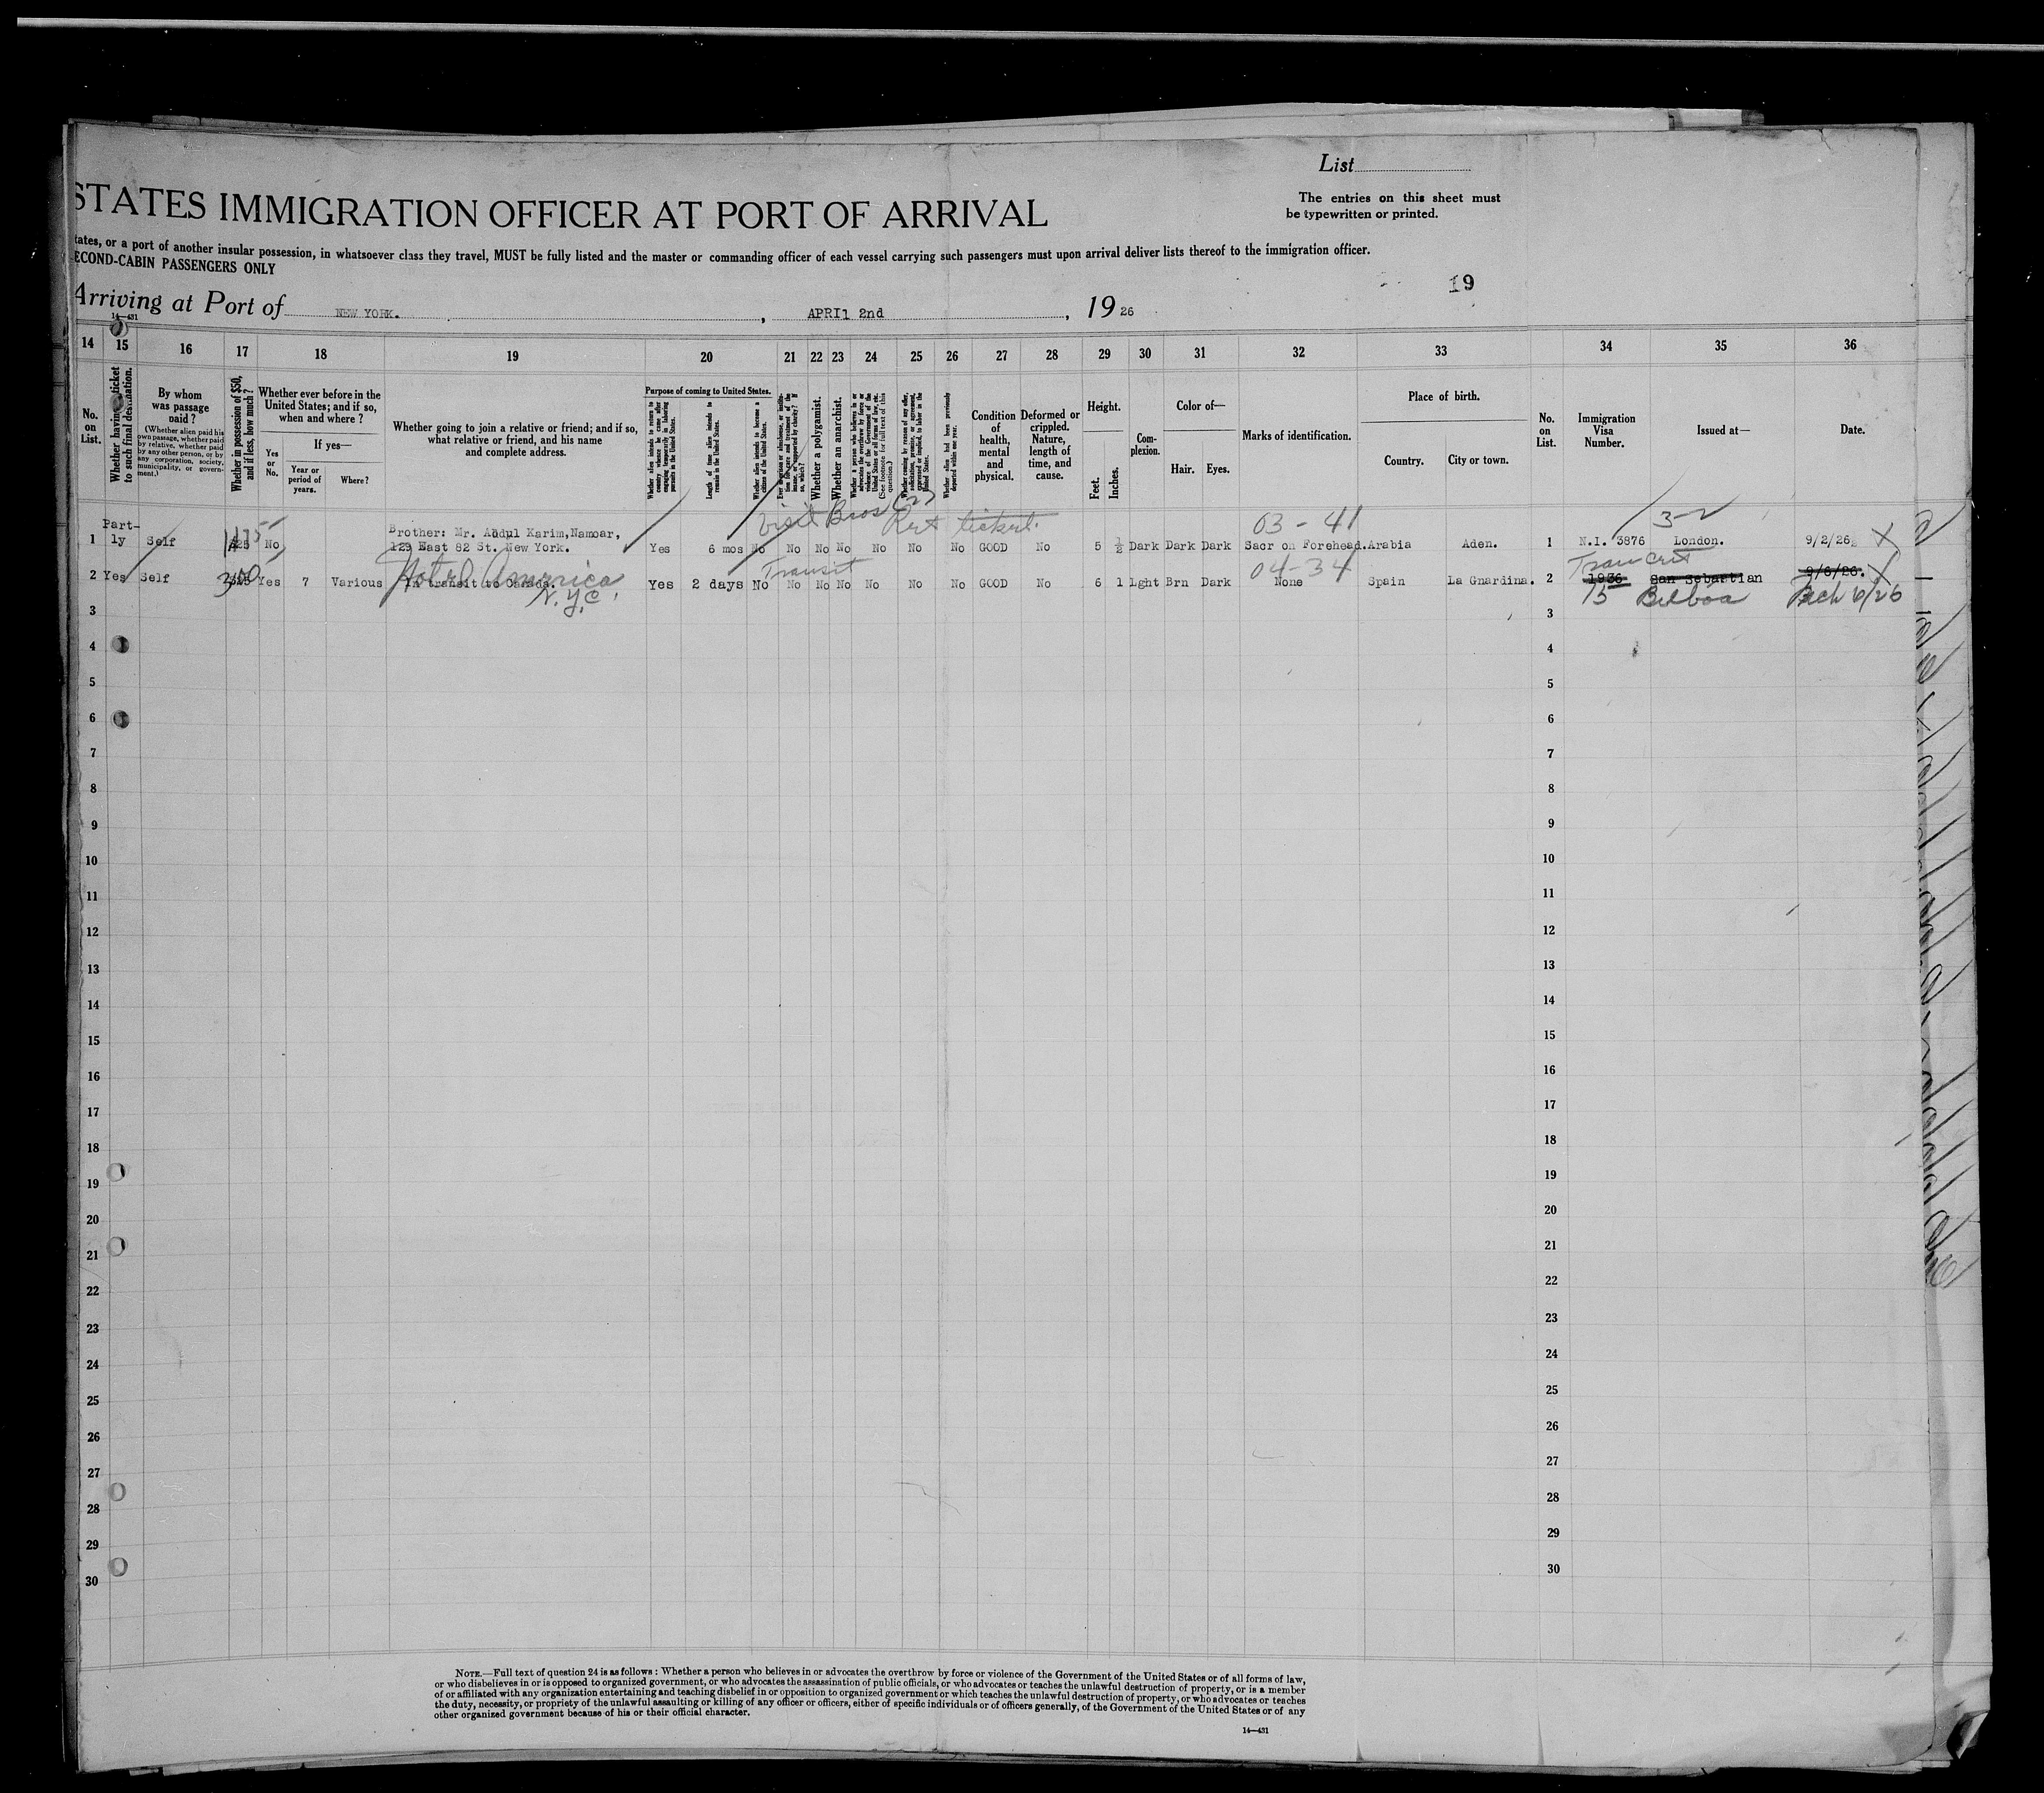 List
The entries on this sheet must
be typewritten or printed.
STATES IMMIGRATION OFFICER AT PORT OF ARRIVAL
tates, or a port of another insular possession, in whatsoever class they travel, MUST be fully listed and the master or commanding officer of each vessel carrying such passengers must upon arrival deliver lists thereof to the immigration officer.
ECOND-CABIN PASSENGERS ONLY
19
Arriving at Port of NEW YORK. , APRIl 2nd , 19 26
14—431
14 15 16 17 18 19 20 21 22 23 24 25 26 27 28 29 30 31 32 33 34 35 36
No. on List.
Whether having ticket to such final destination.
By whom was passage paid?
(Whether alien paid his own passage, whether paid by relative, whether paid by any other person, or by any corporation, society, municipality, or government.)
Whether in possession of $50, and if less, how much?
Whether ever before in the United States; and if so, when and where?
Yes or No.
If yes—
Year or period of years.
Where?
Whether going to join a relative or friend; and if so, what relative or friend, and his name and complete address.
Purpose of coming to United States.
Length of time alien intends to remain in the United States.
Whether alien intends to become a citizen of the United States.
Whether a polygamist.
Whether an anarchist.
Whether alien had been previously deported within one year.
Condition of health, mental and physical.
Deformed or crippled. Nature, length of time, and cause.
Height.
Feet. Inches.
Complexion.
Color of—
Hair. Eyes.
Marks of identification.
Place of birth.
Country. City or town.
No. on List.
Immigration Visa Number.
Issued at—
Date.
Visit Bros (2) Ret ticket. 03-41 3-2
Part- Brother: Mr. Abdul Karim, Namoar,
1 ly Self No 129 East 82 St. New York. Yes 6 mos No No No No No No No GOOD No 5 ½ Dark Dark Dark Sacr on Forehead. Arabia Aden. 1 N.I. 3876 London. 9/2/26
Hotel America Transit 04-34 Transit
2 Yes Self 300 Yes 7 Various In transit to Canada. Yes 2 days No No No No No No No GOOD No 6 1 Lght Brn Dark None Spain La Gnardina. 2 1936 San Sebastian 9/6/26.
N.Y.C. 15 Bilboa Mch 6/26
3 3
4 4
5 5
6 6
7 7
8 8
9 9
10 10
11 11
12 12
13 13
14 14
15 15
16 16
17 17
18 18
19 19
20 20
21 21
22 22
23 23
24 24
25 25
26 26
27 27
28 28
29 29
30 30
NOTE.—Full text of question 24 is as follows: Whether a person who believes in or advocates the overthrow by force or violence of the Government of the United States or of all forms of law,
or who disbelieves in or is opposed to organized government, or who advocates the assassination of public officials, or who advocates or teaches the unlawful destruction of property, or is a member
of or affiliated with any organization entertaining and teaching disbelief in or opposition to organized government or which teaches the unlawful destruction of property, or who advocates or teaches
the duty, necessity, or propriety of the unlawful assaulting or killing of any officer or officers, either of specific individuals or of officers generally, of the Government of the United States or of any
other organized government because of his or their official character.
14—431